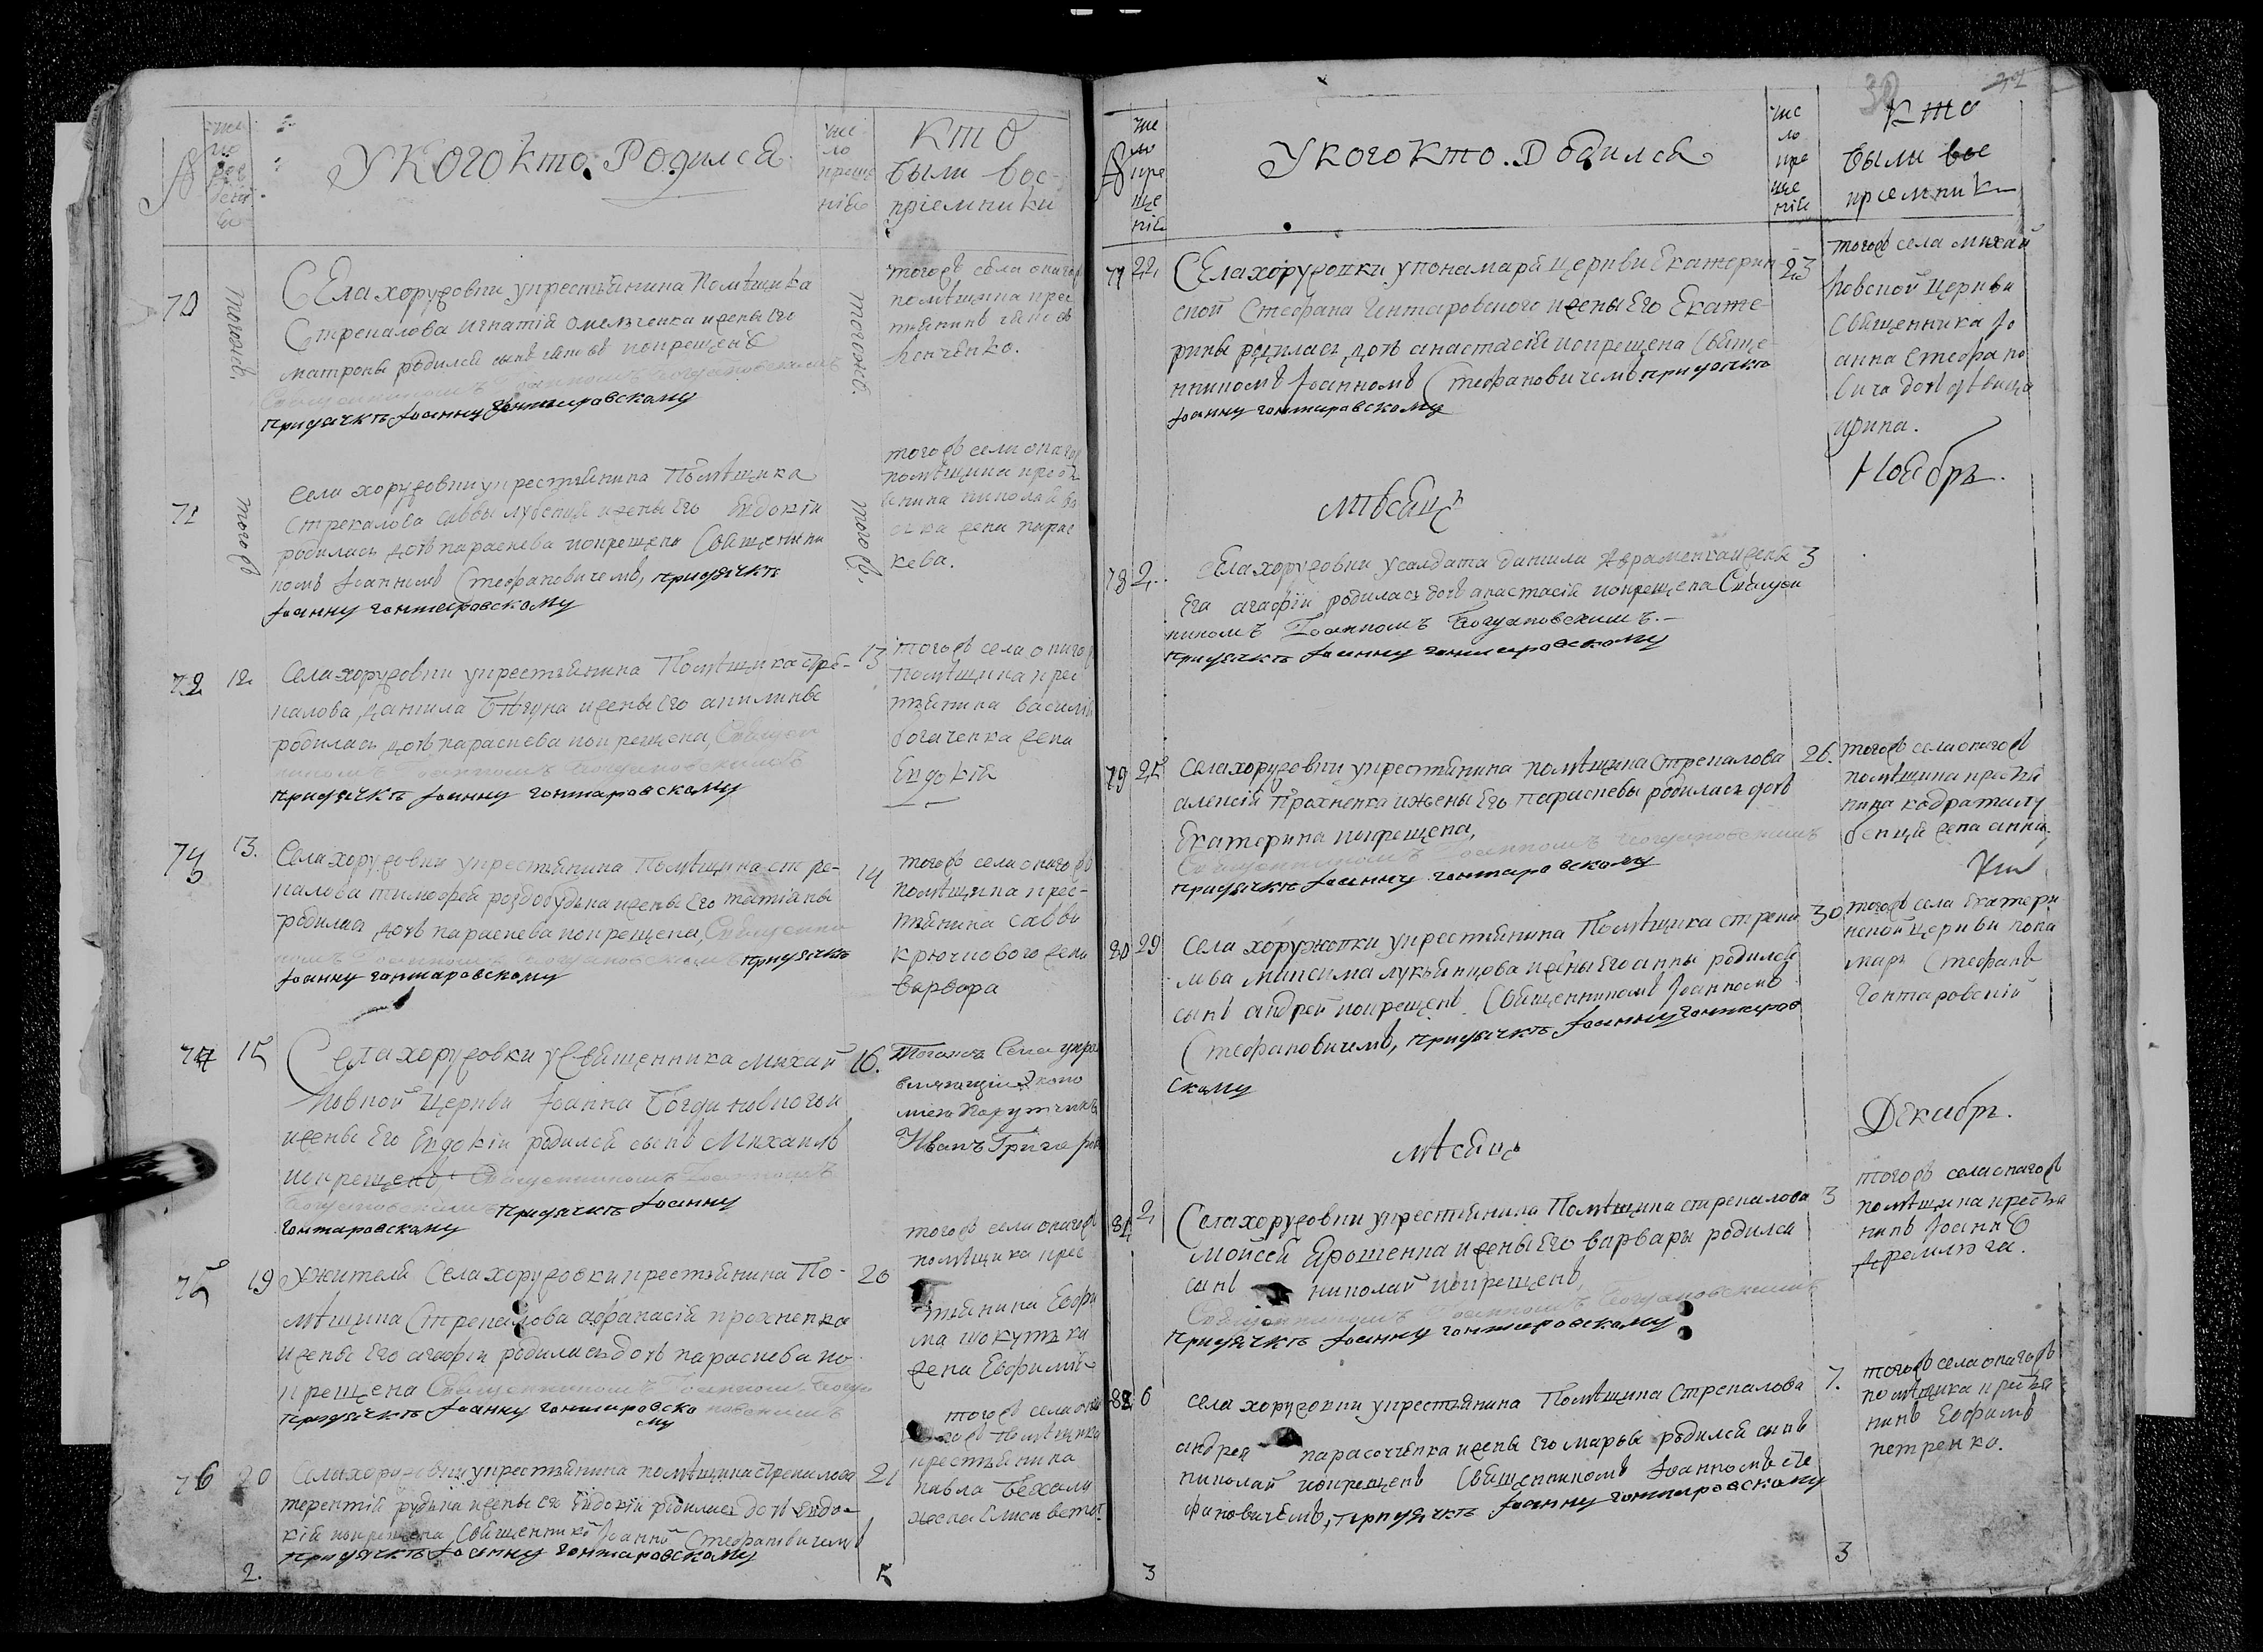 У кого кто Родился
кто
были вос-
пріемники
70
тогожъ
Села хоружовки у крестьянина Помѣщика
Стрекалова игнатія омелченка и жены его
матроны родился сынъ іаковъ и крещенъ
Священникомъ Іоанномъ Богдановскимъ
при дячкѣ Іоанну гонтаровскому
тогожъ
тогожъ села оногожъ
помѣщика крес
тянинъ іаковъ
71
тогожъ
села хоружовки у крестьянина Помѣщика
Стрекалова саввы и жены его Евдокіи
родилась дочь параскева и крещена Священни
комъ Іоанномъ Стефановичемъ, при дячкѣ
Іоанну гонтаровскому
тогожъ
тогожъ села оногожъ
помѣщика
жена парас
кева.
72
12
Села хоружовки у крестьянина Помѣщика Стре-
калова Данила Бѣгуна и жены его акилины
родилась дочь параскева и крещена, Священ
никомъ Іоанномъ Богдановскимъ
при дячкѣ Іоанну гонтаровскому
13
тогожъ села оногожъ
помѣщика крес
тьянина василія
богаченка жена
Евдокія
73
13.
Села хоружовки у крестьянина Помѣщика стре-
калова тимофея роздобудька и жены его татіаны
родилась дочь параскева и крещена, Священни
комъ Іоанномъ Богдановскимъ при дячкѣ
Іоанну гонтаровскому
14
тогожъ села оногожъ
помѣщика крес-
тьянина саввы
крючкового жена
варвара
74
15
Села хоружовки у Священника михай
ловской церкви Іоанна Богдановского и
жены его Евдокіи родился сынъ Михаилъ
и крещенъ Священникомъ Іоанномъ
Богдановскимъ при дячкѣ Іоанну
Гонтаровскому
16.
Тогожъ Села упра
вляющій эконо
міею Порутчикъ
Иванъ
75
19
У жителя Села хоружовки крестьянина По-
мѣщика Стрекалова афанасія прохненка
и жены его агафіи родилась дочь параскева и
крещена Священникомъ Іоанномъ Богда
при дячкѣ Іоанну гонтаровско новскимъ
му
20
тогожъ села оногожъ
помѣщика крес
тьянина Евфи
ма шокутька
жена Евфимія
76
20
Села хоружовки у крестьянина помѣщика Стрекалова
терентія рудька и жены его Евдокіи родилась дочь Евдо-
кія и крещена Священникомъ Іоанномъ Стефановичемъ
при дячкѣ Іоанну гонтаровскому
21
тогожъ села оно
гожъ помѣщика
крестьянина
павла
жена Елисавета.
2.
5
30
У кого кто Родился
Кто
были вос
пріемник
77
22.
Села хоружовки у понамаря церкви Екатерин
ской Стефана Гонтаровского и жены Его Екате
рины родилась дочь анастасія и крещена Свяще
нникомъ Іоанномъ Стефановичемъ при дячкѣ
Іоанну гонтаровскому
23
тогожъ села михай
ловской церкви
Священника Іо
анна Стефано
вича дочь дѣвица
ирина.
Мѣсяцъ
Ноябрь.
78
2.
Села хоружовки у салдата данила Авраменка и жены
Его агафіи родилась дочь анастасія и крещена Священ
никомъ Іоанномъ Богдановскимъ.
при дячкѣ Іоанну гонтаровскому
3
79
25
Села хоружовки у крестьянина помѣщика Стрекалова
алексія Прохненка и жены Его параскевы родилась дочь
Екатерина и крещена,
Священникомъ Іоанномъ Богдановскимъ
при дячкѣ Іоанну гонтаровскому
26.
тогожъ села оногожъ
помѣщика крестья
нина
жена анна.
80
29
Села хоружовки у крестьянина Помѣщика стрека
лова максима лукьянцова и жены Его анны родился
сынъ андрей и крещенъ Священникомъ Іоанномъ
Стефановичемъ, при дячкѣ Іоанну Гонтаров
скому
30
тогожъ села Екатери
нской церкви пона
марь Стефанъ
Гонтаровскій
мѣсяцъ
Декабрь.
81
2
Села хоружовки у крестьянина Помѣщика стрекалова
Мойсея Ярошенка и жены Его варвары родился
сынъ николай и крещенъ,
Священникомъ Іоанномъ Богдановскимъ
при дячкѣ Іоанну гонтаровскому
3
тогожъ села оногожъ
помѣщика крестья
нинъ Іоаннъ
дремлюга.
82
6
села хоружовки у крестьянина Помѣщика Стрекалова
андрея парасочченка и жены Его марьи родился сынъ
николай и крещенъ Священникомъ Іоанномъ Сте
фановичемъ, при дячкѣ Іоанну гонтаровскому
7.
тогожъ села оногожъ
помѣщика крестья
нинъ Евфимъ
петренко.
3
3